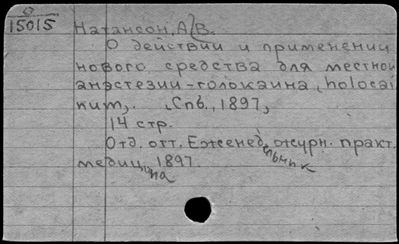 0
15015
Натансон, А. В.
О действии и применении
нового средства для местной
анэстезии-голокаина, holocai
num,. Спб., 1897,
14 стр.
Отд. отт. Еженед. журн. практ.
медиц, 1897.